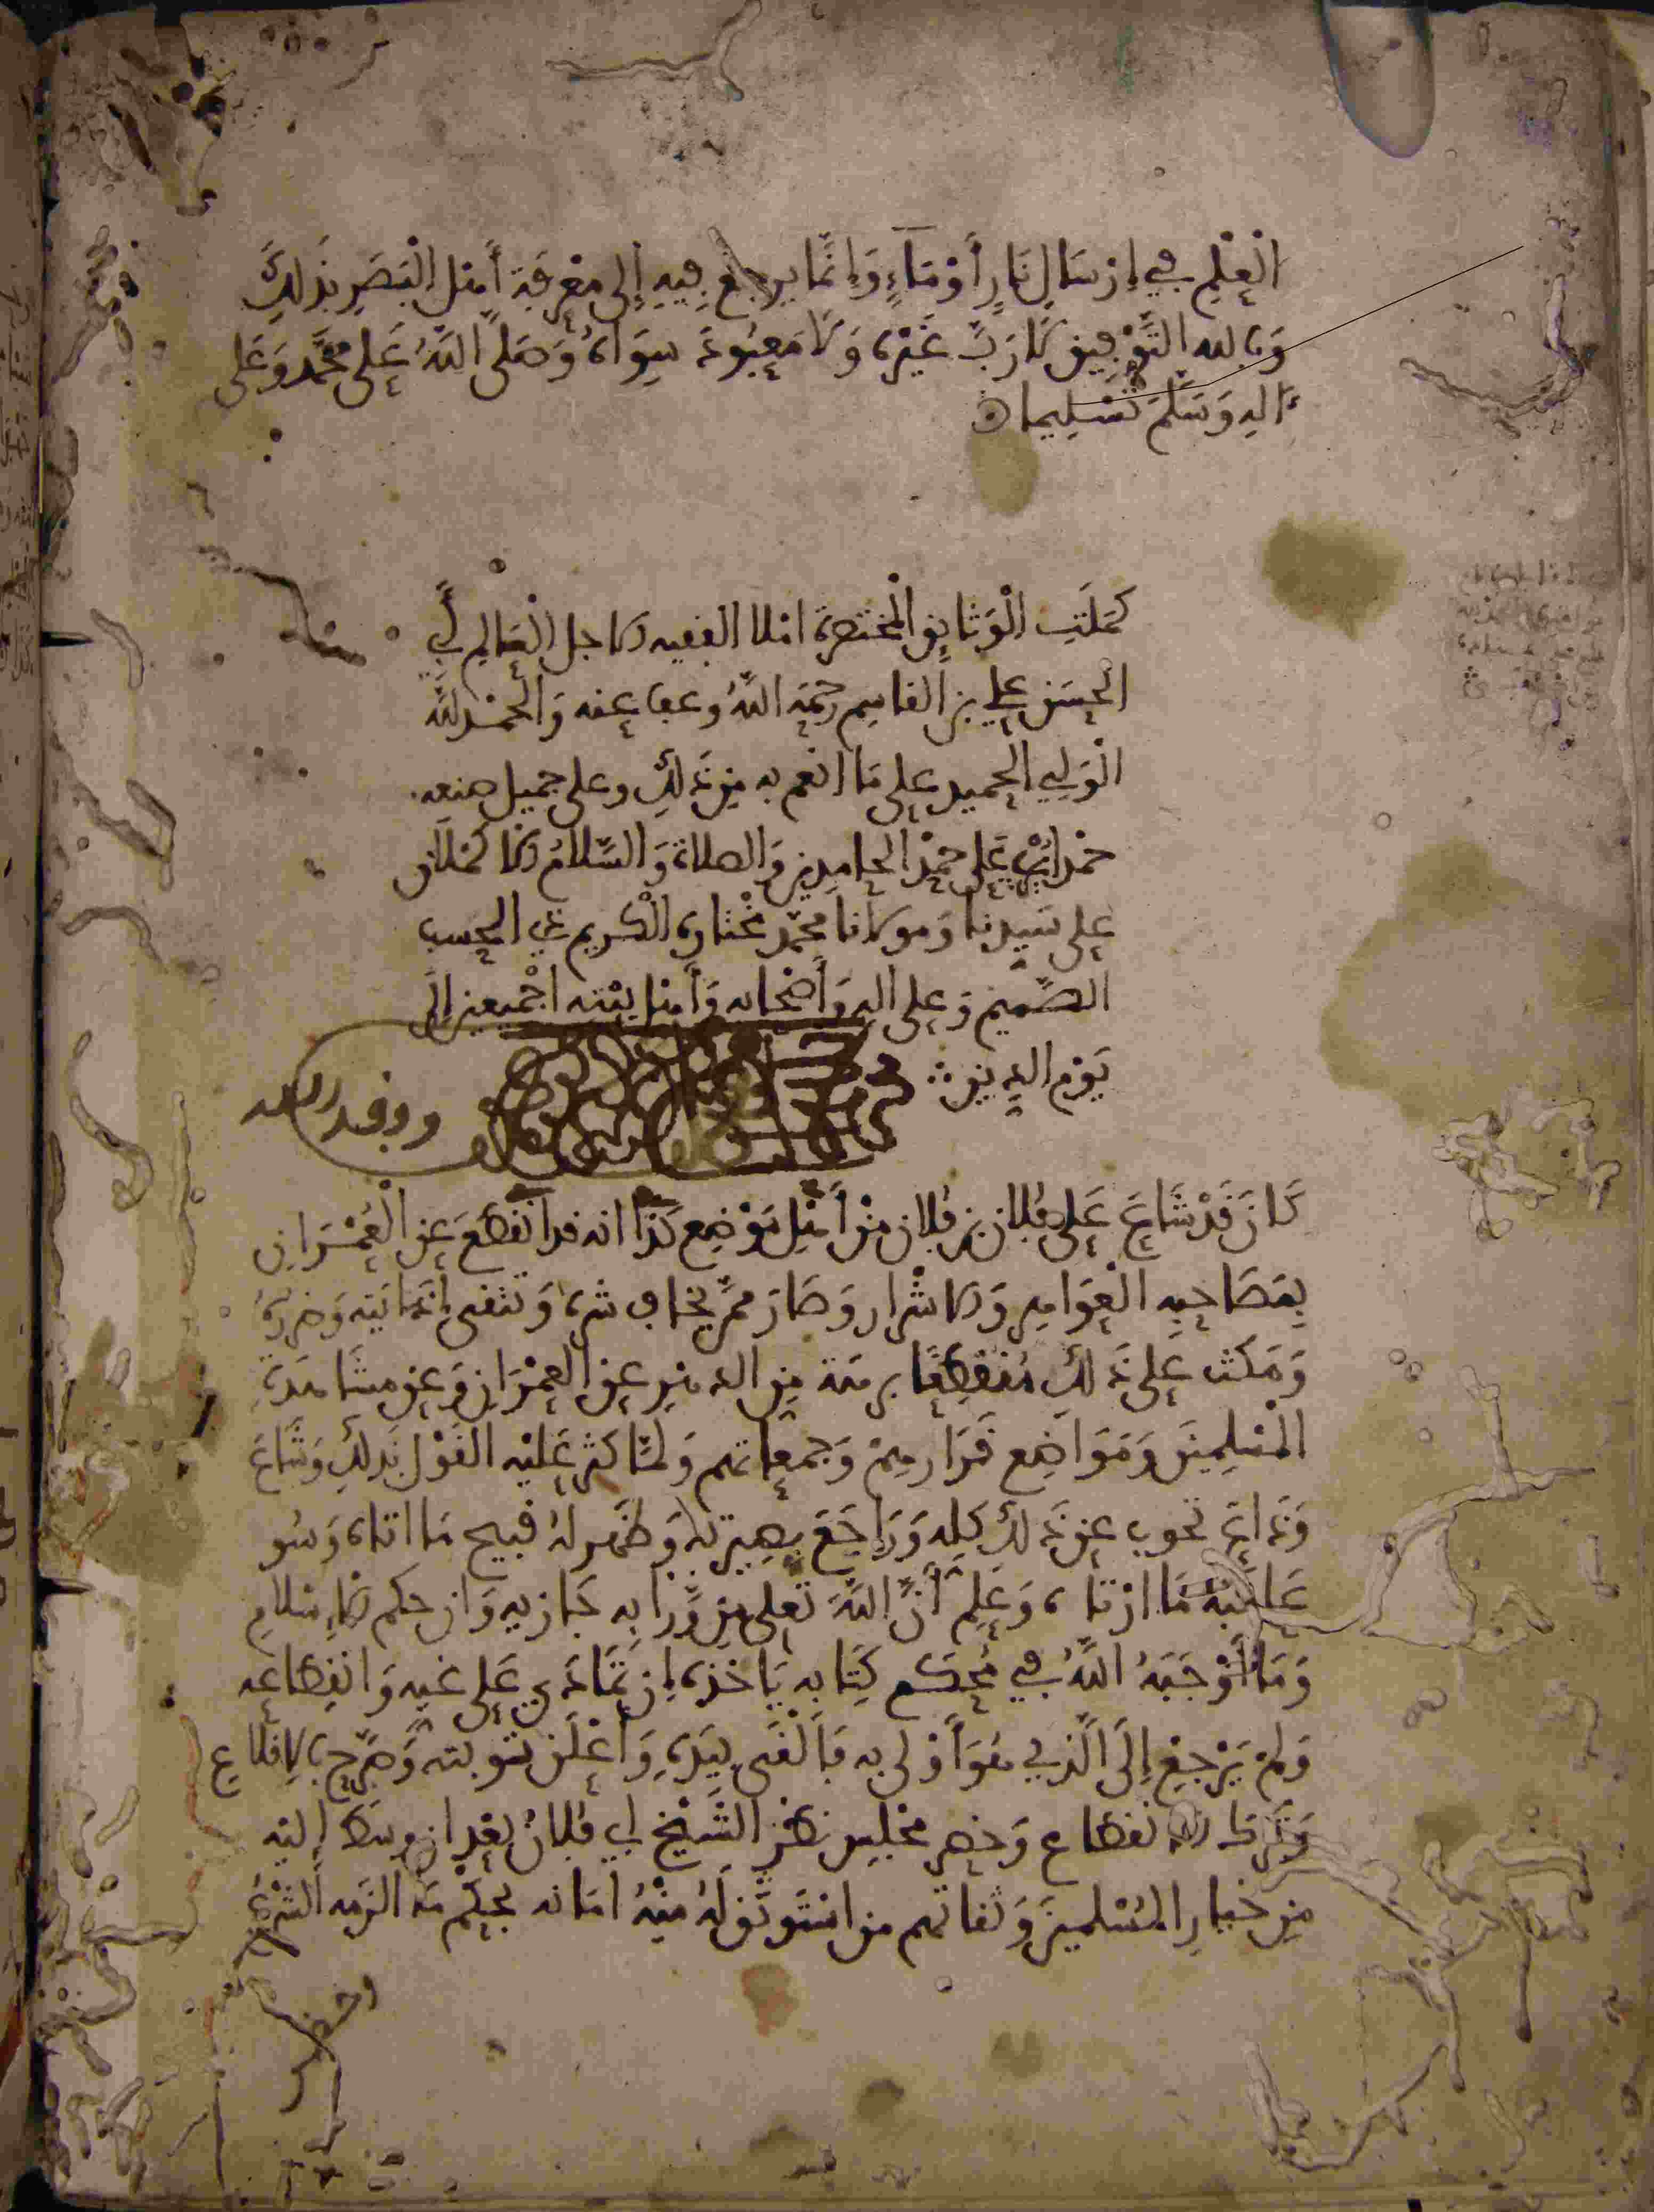 الْعِلْمِ في إرْسَالِ نَارٍ أَوْ مَاءٍ وَإنَّمَا يرجع فِيهِ إلى مَعْرِفَةِ أَهْلِ الْبَصَرِ بذَلِكَ
وَبالله التَّوْفِيق لا رَبَّ غَيْرُه وَلا مَعبُودَ سِوَاهُ وَصَلى اللَّهُ عَلى محَمَّد وَعَلى
ءَالِهِ وَسَلَّمَ تَسْلِيما
كمَلَتِ الْوَثَايِق الْمخْتصرة املا الفقيه الاجل الْعَالِم أَبِي
الحسَن علي بن القاسِم رحمَه اللَّهُ وعفا عنه وَالْحمْد لِلَّه
الْوَلِي الحميد على مَا انعم به مِن ذَلِكَ وعلى جميل صنعه
حمْدا يُرْبِي عَلى حمْد الحامِدِين وَالصلاة وَالسَّلامُ الاكمَلان
على سَيدِنا وَمولانا محَمَّد مخْتاره الْكريم في الحسب
الصَّمِيم وَعلى اله وَأَصْحابه وَأهْل بَيْته اجْمَعِين إلَى
يَوْم الدِّين
ووفقه الله
كَانَ قَدْ شَاعَ عَلى فُلان بن فُلان مِنْ أَهْلِ مَوْضِع كَذَا انه قد انْقَطَعَ عَن الْعُمْرَانِ
بِمَصَاحبه الْعَوَامِر وَالاشْرار وَصَارَ ممَّن يخاف شره وَتتقى إذَايَته وَضَرَرُهُ
وَمَكَث على ذَلِكَ مُنْقَطِعًا برهَة مِن الدهرِ عن العمْرَانِ وَعن مشَاهدَةِ
الْمسْلِمِينَ وَمَوَاضِع قَرَارِهِمْ وَجمعاتهم وَلمَّا كثر عَلَيْه القَوْل بذَلِكَ وَشَاعَ
وَذَاعَ تحوب عن ذَلِكَ كله وَرَاجَعَ بصِيرته وَظَهر لهُ قبيح مَا اتاه وَسُو
عَاقِبَة مَا ارْتاه وَعَلِمَ أَنَّ اللَّهَ تعلى مِن وَّرَايِه بجازيه وَان حكم الاِسْلامِ
وَمَا أَوْجَبَهُ اللَّهُ فِي مُحْكَمِ كِتَابه يَاخذه إن تمَادَى عَلى غيه وَانقِطَاعه
وَلمْ يَرْجِعْ إلَى الَّذِي هُوَ أَوْلى به فَأَلْقَى بيَدِهِ وَأَعْلَن بتَوبته وَصَرَّح بالاِقلاع
وَتَرْك الانقطاع وَحضر مجْلِس نظَر الشَّيْخ ابي فُلان بَعْد ان وسَط إليْه
مِن خيارِ المُسْلمينَ وَثقاتهم من اسْتَوثَق لَهُ مِنْهُ امَانه بحكْم مَا الزمه الشرْعُ
وحضر